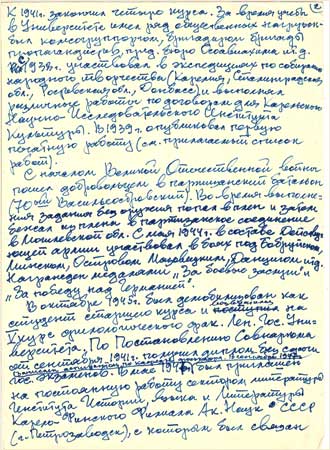 2
1941 г. закончил четыре курса. За время учебы
в Университете имел ряд общественных нагрузок:
был комсогруппоргом, бригадиром бригады
пропагандистов, пред. бюро Осоавиахима и д.
В 1938 г. участвовал в экспедициях по собиранию
народного творчества (Карелия, Сталинградская
обл., Ростовская обл., Донбасс) и выполнял
различные работы по договорам для Карельского
Научно-Исследовательского Института
Культуры. В 1939 г. опубликовал первую
печатную работу (см. прилагаемый список
работ).
С началом Великой Отечественной войны
пошел добровольцем в партизанский батальон
(Василеостровский). Во время выполне-
ния задания без оружия попал в плен и затем
бежал из плена в партизанское соединение
в Могилевской обл. С мая 1944 г. в составе Действу-
ющей армии участвовал в боях под Бобруйском,
Минском, Островом Мазовецким, Данцигом и д.
Награжден медалями „За боевые заслуги" и
„За победу над Германией".
В октябре 1945 г. был демобилизован как
студент старшего курса и поступил на
V курс филологического фак. Лен. Гос. Уни-
верситета. По Постановлению Совнаркома
от сентября 1941 г. получил диплом без сдачи
гос. экзаменов. В мае 194 г. был приглашен
на постоянную работу сектором литературы
Института Истории, Языка и Литературы
Карело-Финского Филиала Ак. Наук СССР
(г. Петрозаводск), с которым был связан